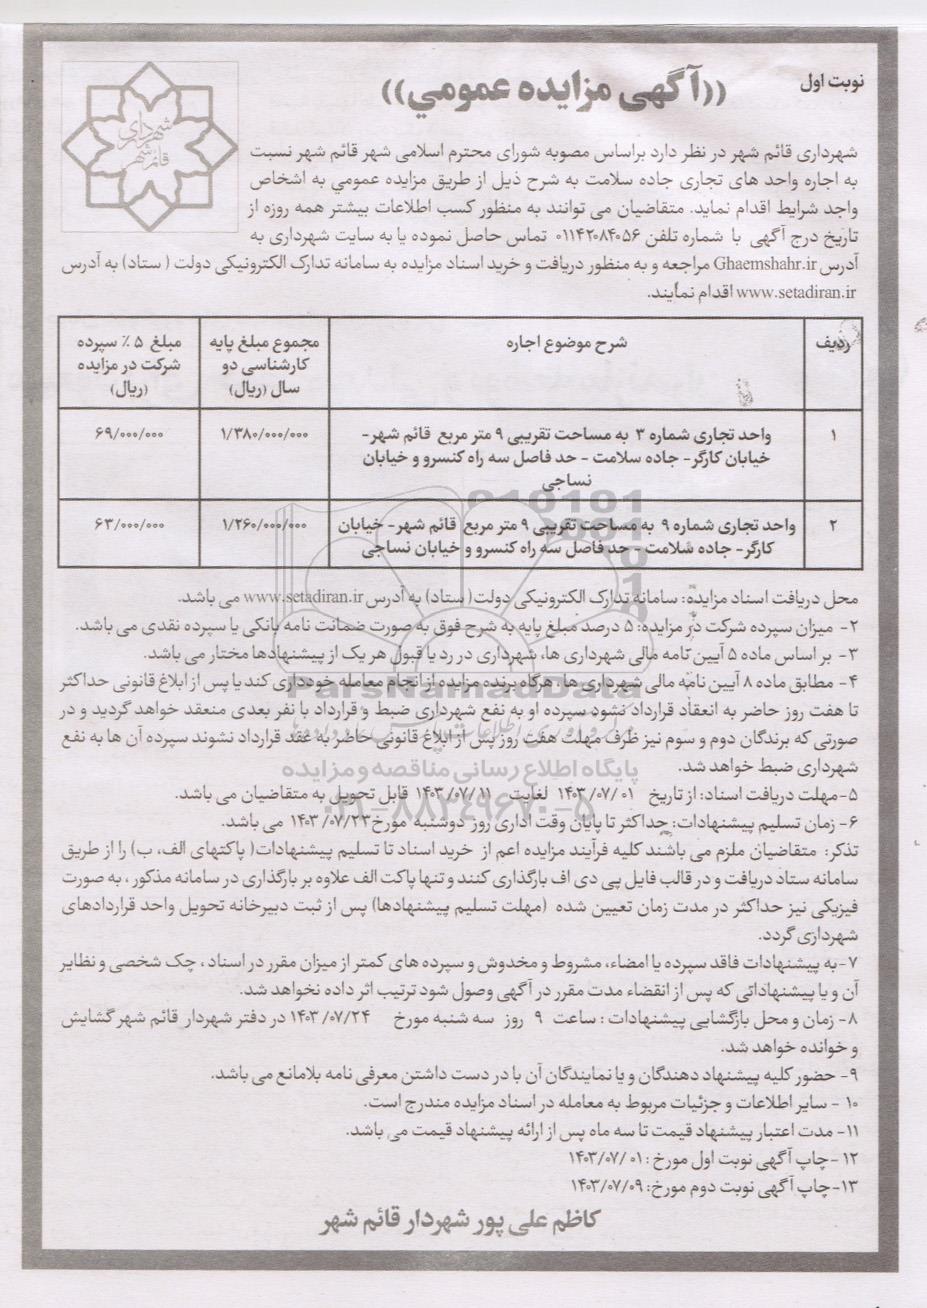 نوبت اول
((آگهی مزایده عمومي))
شهرداری قائم شهر
شهرداری قائم شهر در نظر دارد براساس مصوبه شورای محترم اسلامی شهر قائم شهر نسبت
به اجاره واحد های تجاری جاده سلامت به شرح ذیل از طریق مزایده عمومي به اشخاص
واجد شرایط اقدام نماید. متقاضیان می توانند به منظور کسب اطلاعات بیشتر همه روزه از
تاریخ درج آگهی با شماره تلفن ۰۱۱۴۲۰۸۴۰۵۶ تماس حاصل نموده یا به سایت شهرداری به
آدرس Ghaemshahr.ir مراجعه و به منظور دریافت و خرید اسناد مزایده به سامانه تدارک الکترونیکی دولت ( ستاد) به آدرس
www.setadiran.ir اقدام نمایند.
ردیف
شرح موضوع اجاره
مجموع مبلغ پایه
کارشناسی دو
سال (ریال)
مبلغ ۵ ٪ سپرده
شرکت در مزایده
(ریال)
۱
واحد تجاری شماره ۳ به مساحت تقریبی ۹ متر مربع قائم شهر-
خیابان کارگر- جاده سلامت - حد فاصل سه راه کنسرو و خیابان
نساجی
۱/۳۸۰/۰۰۰/۰۰۰
۶۹/۰۰۰/۰۰۰
۲
واحد تجاری شماره ۹ به مساحت تقریبی ۹ متر مربع قائم شهر- خیابان
کارگر- جاده سلامت - حد فاصل سه راه کنسرو و خیابان نساجی
۱/۲۶۰/۰۰۰/۰۰۰
۶۳/۰۰۰/۰۰۰
محل دریافت اسناد مزایده: سامانه تدارک الکترونیکی دولت( ستاد) به آدرس www.setadiran.ir می باشد.
۲- میزان سپرده شرکت در مزایده: ۵ درصد مبلغ پایه به شرح فوق به صورت ضمانت نامه بانکی یا سپرده نقدی می باشد.
۳- بر اساس ماده ۵ آیین نامه مالی شهرداری ها، شهرداری در رد یا قبول هر یک از پیشنهادها مختار می باشد.
۴- مطابق ماده ۸ آیین نامه مالی شهرداری ها ، هرگاه برنده مزایده از انجام معامله خودداری کند یا پس از ابلاغ قانونی حداکثر
تا هفت روز حاضر به انعقاد قرارداد نشود سپرده او به نفع شهرداری ضبط و قرارداد با نفر بعدی منعقد خواهد گردید و در
صورتی که برندگان دوم و سوم نیز ظرف مهلت هفت روز پس از ابلاغ قانونی حاضر به عقد قرارداد نشوند سپرده آن ها به نفع
شهرداری ضبط خواهد شد.
۵-مهلت دریافت اسناد: از تاریخ ۰۱ /۱۴۰۳/۰۷ لغایت ۱۴۰۳/۰۷/۱۱ قابل تحویل به متقاضیان می باشد.
۶- زمان تسلیم پیشنهادات: حداکثر تا پایان وقت اداری روز دوشنبه مورخ ۱۴۰۳/۰۷/۲۳ می باشد.
تذکر: متقاضیان ملزم می باشند کلیه فرآیند مزایده اعم از خرید اسناد تا تسلیم پیشنهادات( پاکتهای الف، ب) را از طریق
سامانه ستاد دریافت و در قالب فایل پی دی اف بارگذاری کنند و تنها پاکت الف علاوه بر بارگذاری در سامانه مذکور ، به صورت
فیزیکی نیز حداکثر در مدت زمان تعیین شده (مهلت تسلیم پیشنهادها) پس از ثبت دبیرخانه تحویل واحد قراردادهای
شهرداری گردد.
۷-به پیشنهادات فاقد سپرده یا امضاء، مشروط و مخدوش و سپرده های کمتر از میزان مقرر در اسناد ، چک شخصی و نظایر
آن و یا پیشنهاداتی که پس از انقضاء مدت مقرر در آگهی وصول شود ترتیب اثر داده نخواهد شد.
۸- زمان و محل بازگشایی پیشنهادات : ساعت ۹ روز سه شنبه مورخ ۱۴۰۳/۰۷/۲۴ در دفتر شهردار قائم شهر گشایش
و خوانده خواهد شد.
۹- حضور کلیه پیشنهاد دهندگان و یا نمایندگان آن با در دست داشتن معرفی نامه بلامانع می باشد.
۱۰ - سایر اطلاعات و جزئیات مربوط به معامله در اسناد مزایده مندرج است.
۱۱- مدت اعتبار پیشنهاد قیمت تا سه ماه پس از ارائه پیشنهاد قیمت می باشد.
۱۲ -چاپ آگهی نوبت اول مورخ : ۰۱ /۱۴۰۳/۰۷
۱۳-چاپ آگهی نوبت دوم مورخ: ۱۴۰۳/۰۷/۰۹
کاظم علی پور شهردار قائم شهر
ParsNamadData
پایگاه اطلاع رسانی مناقصه و مزایده
۰۲۱-۸۸۳۴۹۶۷۰-۵